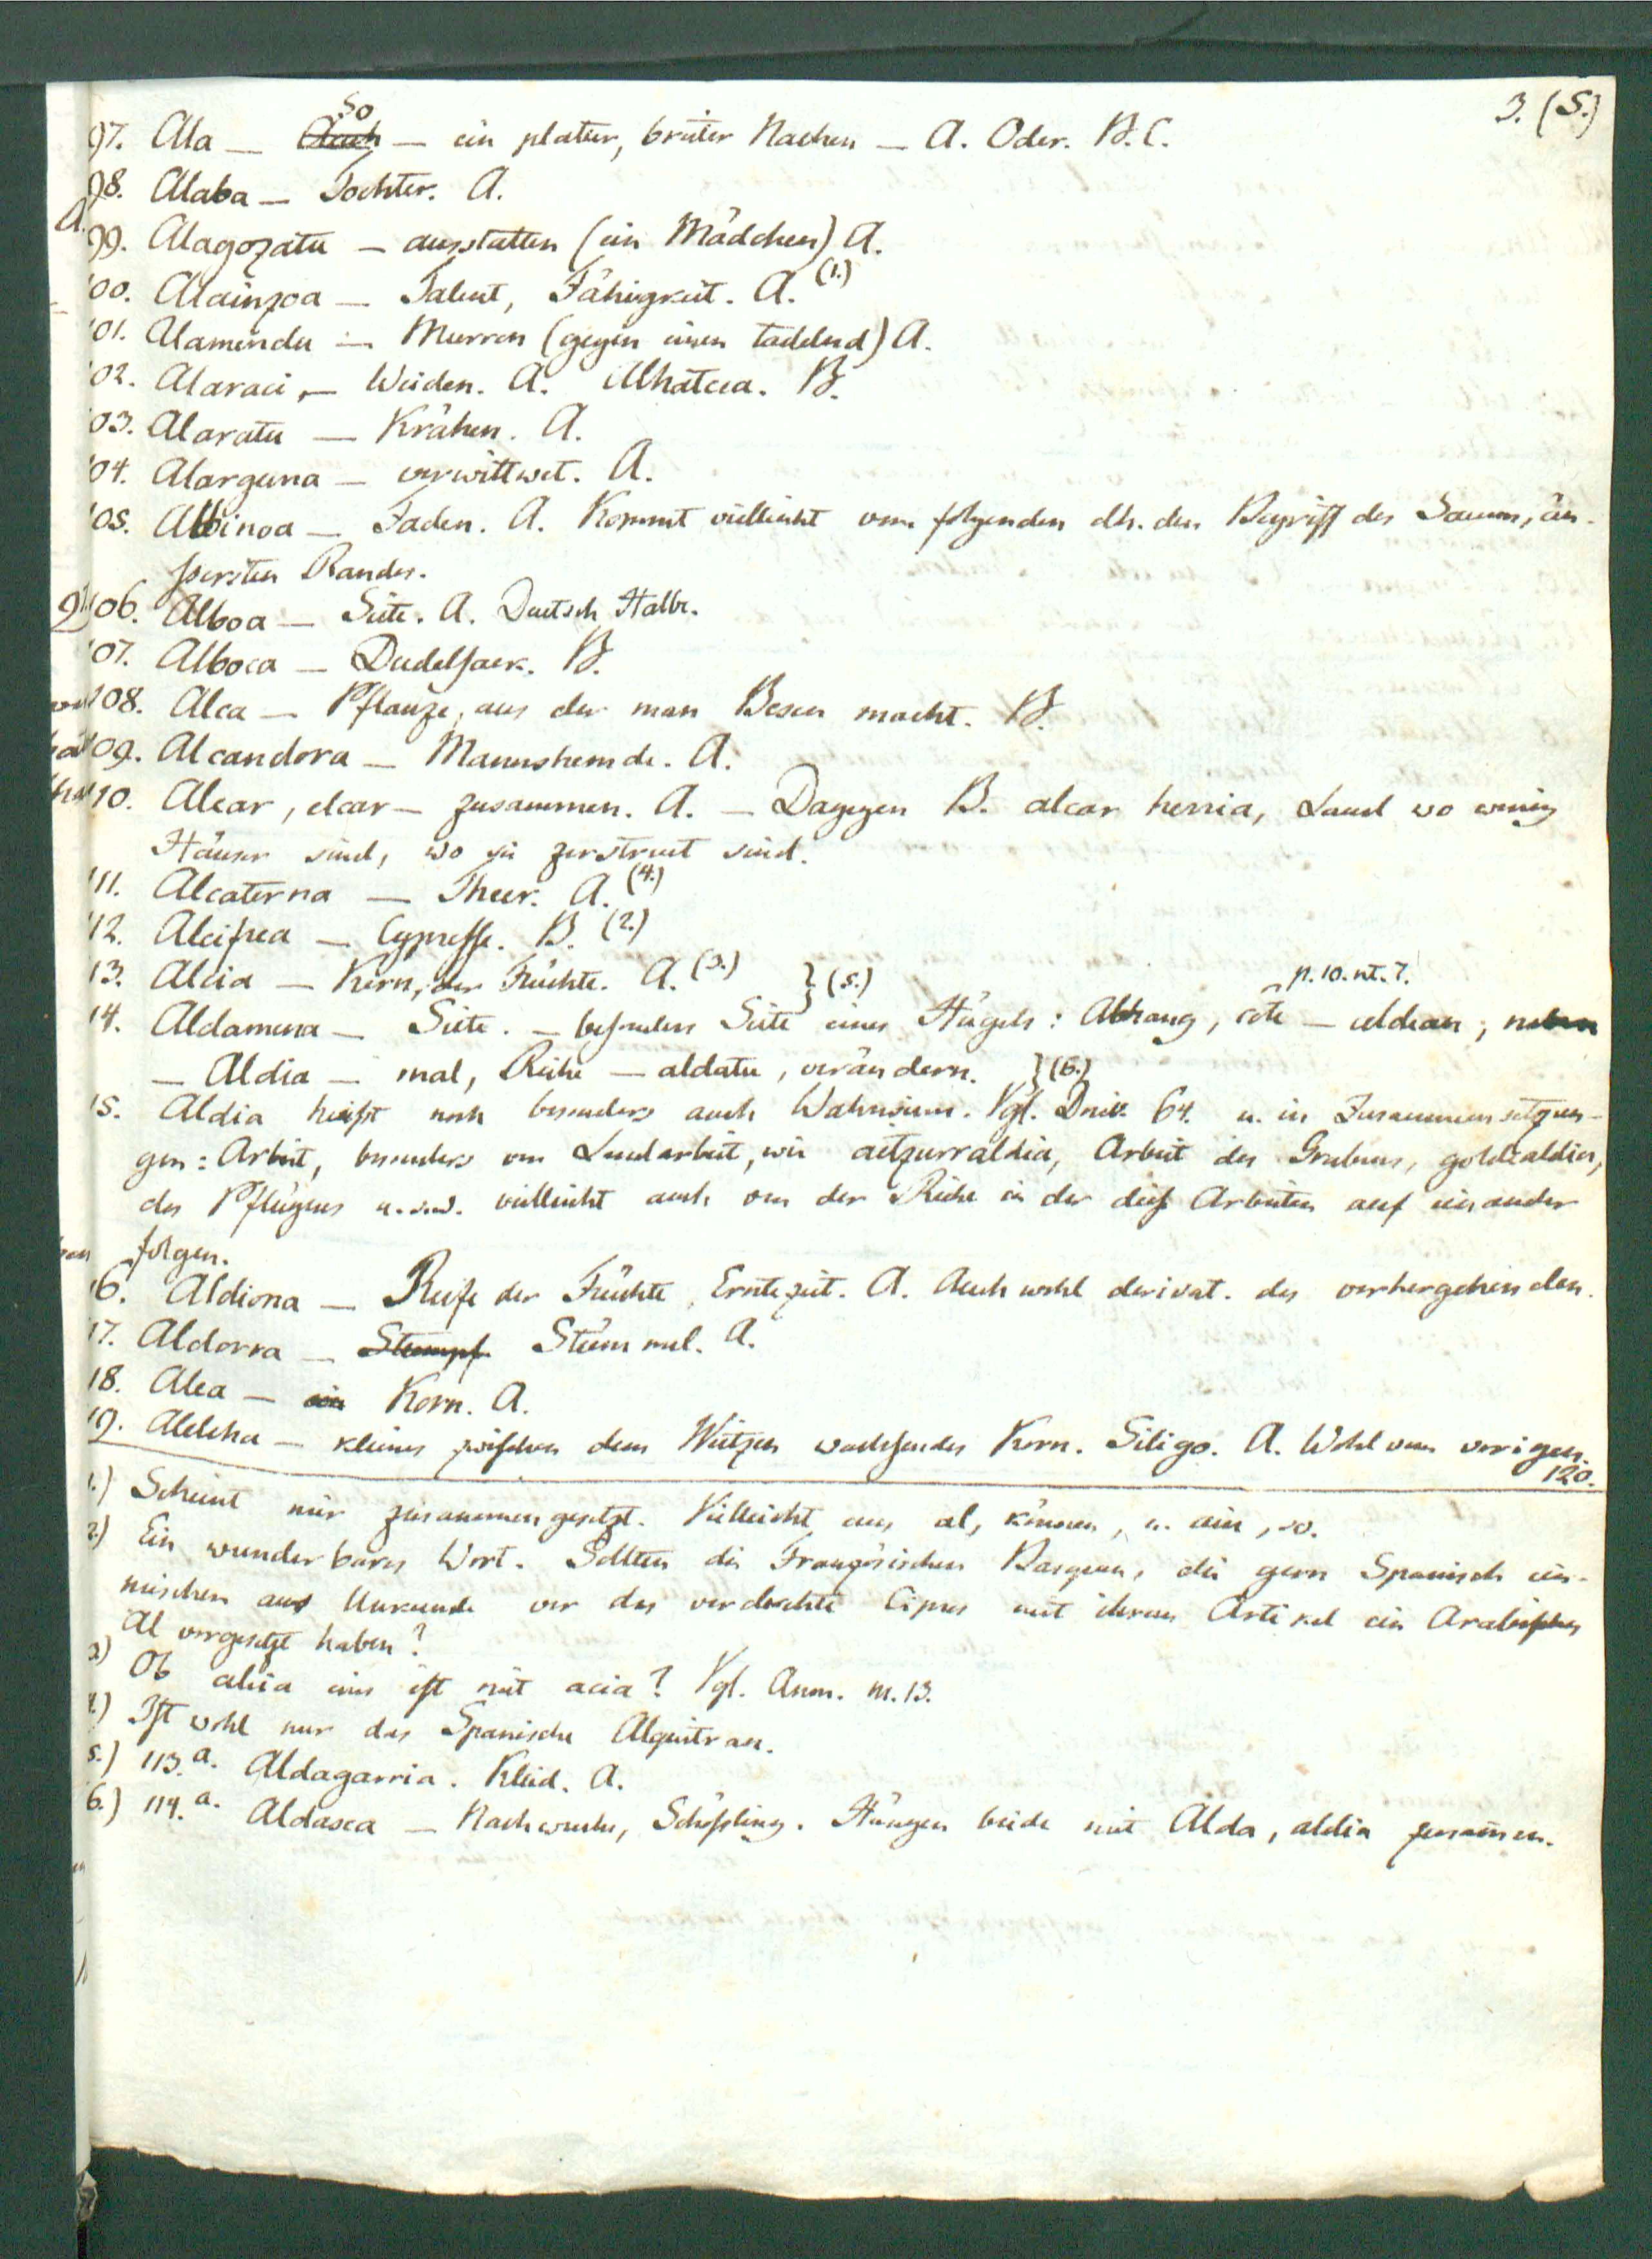 3. (5.)
97. Ala — so — ein platter, breiter Nachen — A. Oder. B. C.
98. Alaba — Tochter. A.
99. Alagozatu — ausstatten (ein Mädchen) A.
100. Alainzoa — Talent, Fähigkeit. A. (1.)
101. Alamendu — Murren (gegen einen tadelnd) A.
102. Alaraci, — Weiden. A. Alhatcea. B.
103. Alaratu — Krähen. A.
104. Alarguna — verwittwet. A.
105. Albinoa — Faden. A. Kommt vielleicht vom folgenden dh. den Begriff des Saums, äu-
ßersten Randes.
106. Alboa — Seite. A. Deutsch Halbe.
107. Alboca — Dudelsack. B.
108. Alca — Pflanze, aus der man Besen macht. B.
109. Alcandora — Mannshemde. A.
110. Alcar, elcar — zusammen. A. — Dagegen B. alcar herria, Land wo wenig
Häuser sind, wo sie zerstreut sind.
111. Alcaterna — Theer. A. (4.)
112. Alcifrea — Cypresse. B. (2.)
113. Alcia — Kern, der Früchte. A. (3.) } (5.)
p. 10. nt. 7.
114. Aldamena — Seite. — besonders Seite eines Hügels: Abhang, côte — aldean, neben
— Aldia — mal, Reihe — aldatu, verändern. } (6.)
15. Aldia heißt noch besonders auch Wahnsinn. Vgl. 64. u. in Zusammensetzun-
gen: Arbeit, besonders von Landarbeit, wie aitzurraldia, Arbeit des Grabens, goldealdia,
des Pflügens u.s.w. vielleicht auch von der Reihe in der diese Arbeiten auf einander
folgen.
16. Aldiona — Reife der Früchte, Erntezeit. A. Auch wohl derivat. des vorhergehenden.
17. Aldorra — Stumpf Stümmel. A.
18. Alea — ein Korn. A.
19. Alelcha — kleines zwischen dem Weitzen wachsendes Korn. Siligo. A. Wohl vom vorigen.
120.
1.) Scheint mir zusammengesetzt. Vielleicht aus al, können, u. ain, so.
2.) Ein wunderbares Wort. Sollten die Französischen Basquen, die gern Spanisch ein-
mischen aus Unkunde vor das verdrehte Cipres mit ihrem Artikel ein Arabisches
Al vorgesetzt haben?
3) Ob alcia eins ist mit acia? Vgl. Anm. nr. 13.
4.) Ist wohl nur das Spanische Alquitran.
5.) 113.a. Aldagarria. Kleid. A.
6.) 114.a. Aldasca — Nachwuchs, Schößling. Hängen beide mit Alda, aldia zusammen.